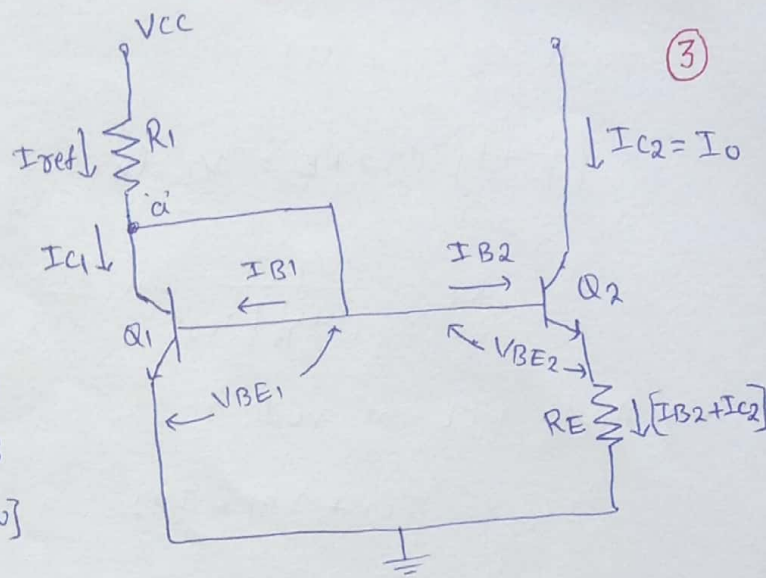 VCC
③
Iref↓ R1
↓ IC2 = I0
'a'
IC1↓
IB1
IB2
Q1
Q2
VBE1
VBE2
RE ↓[IB2+IC2]
0]